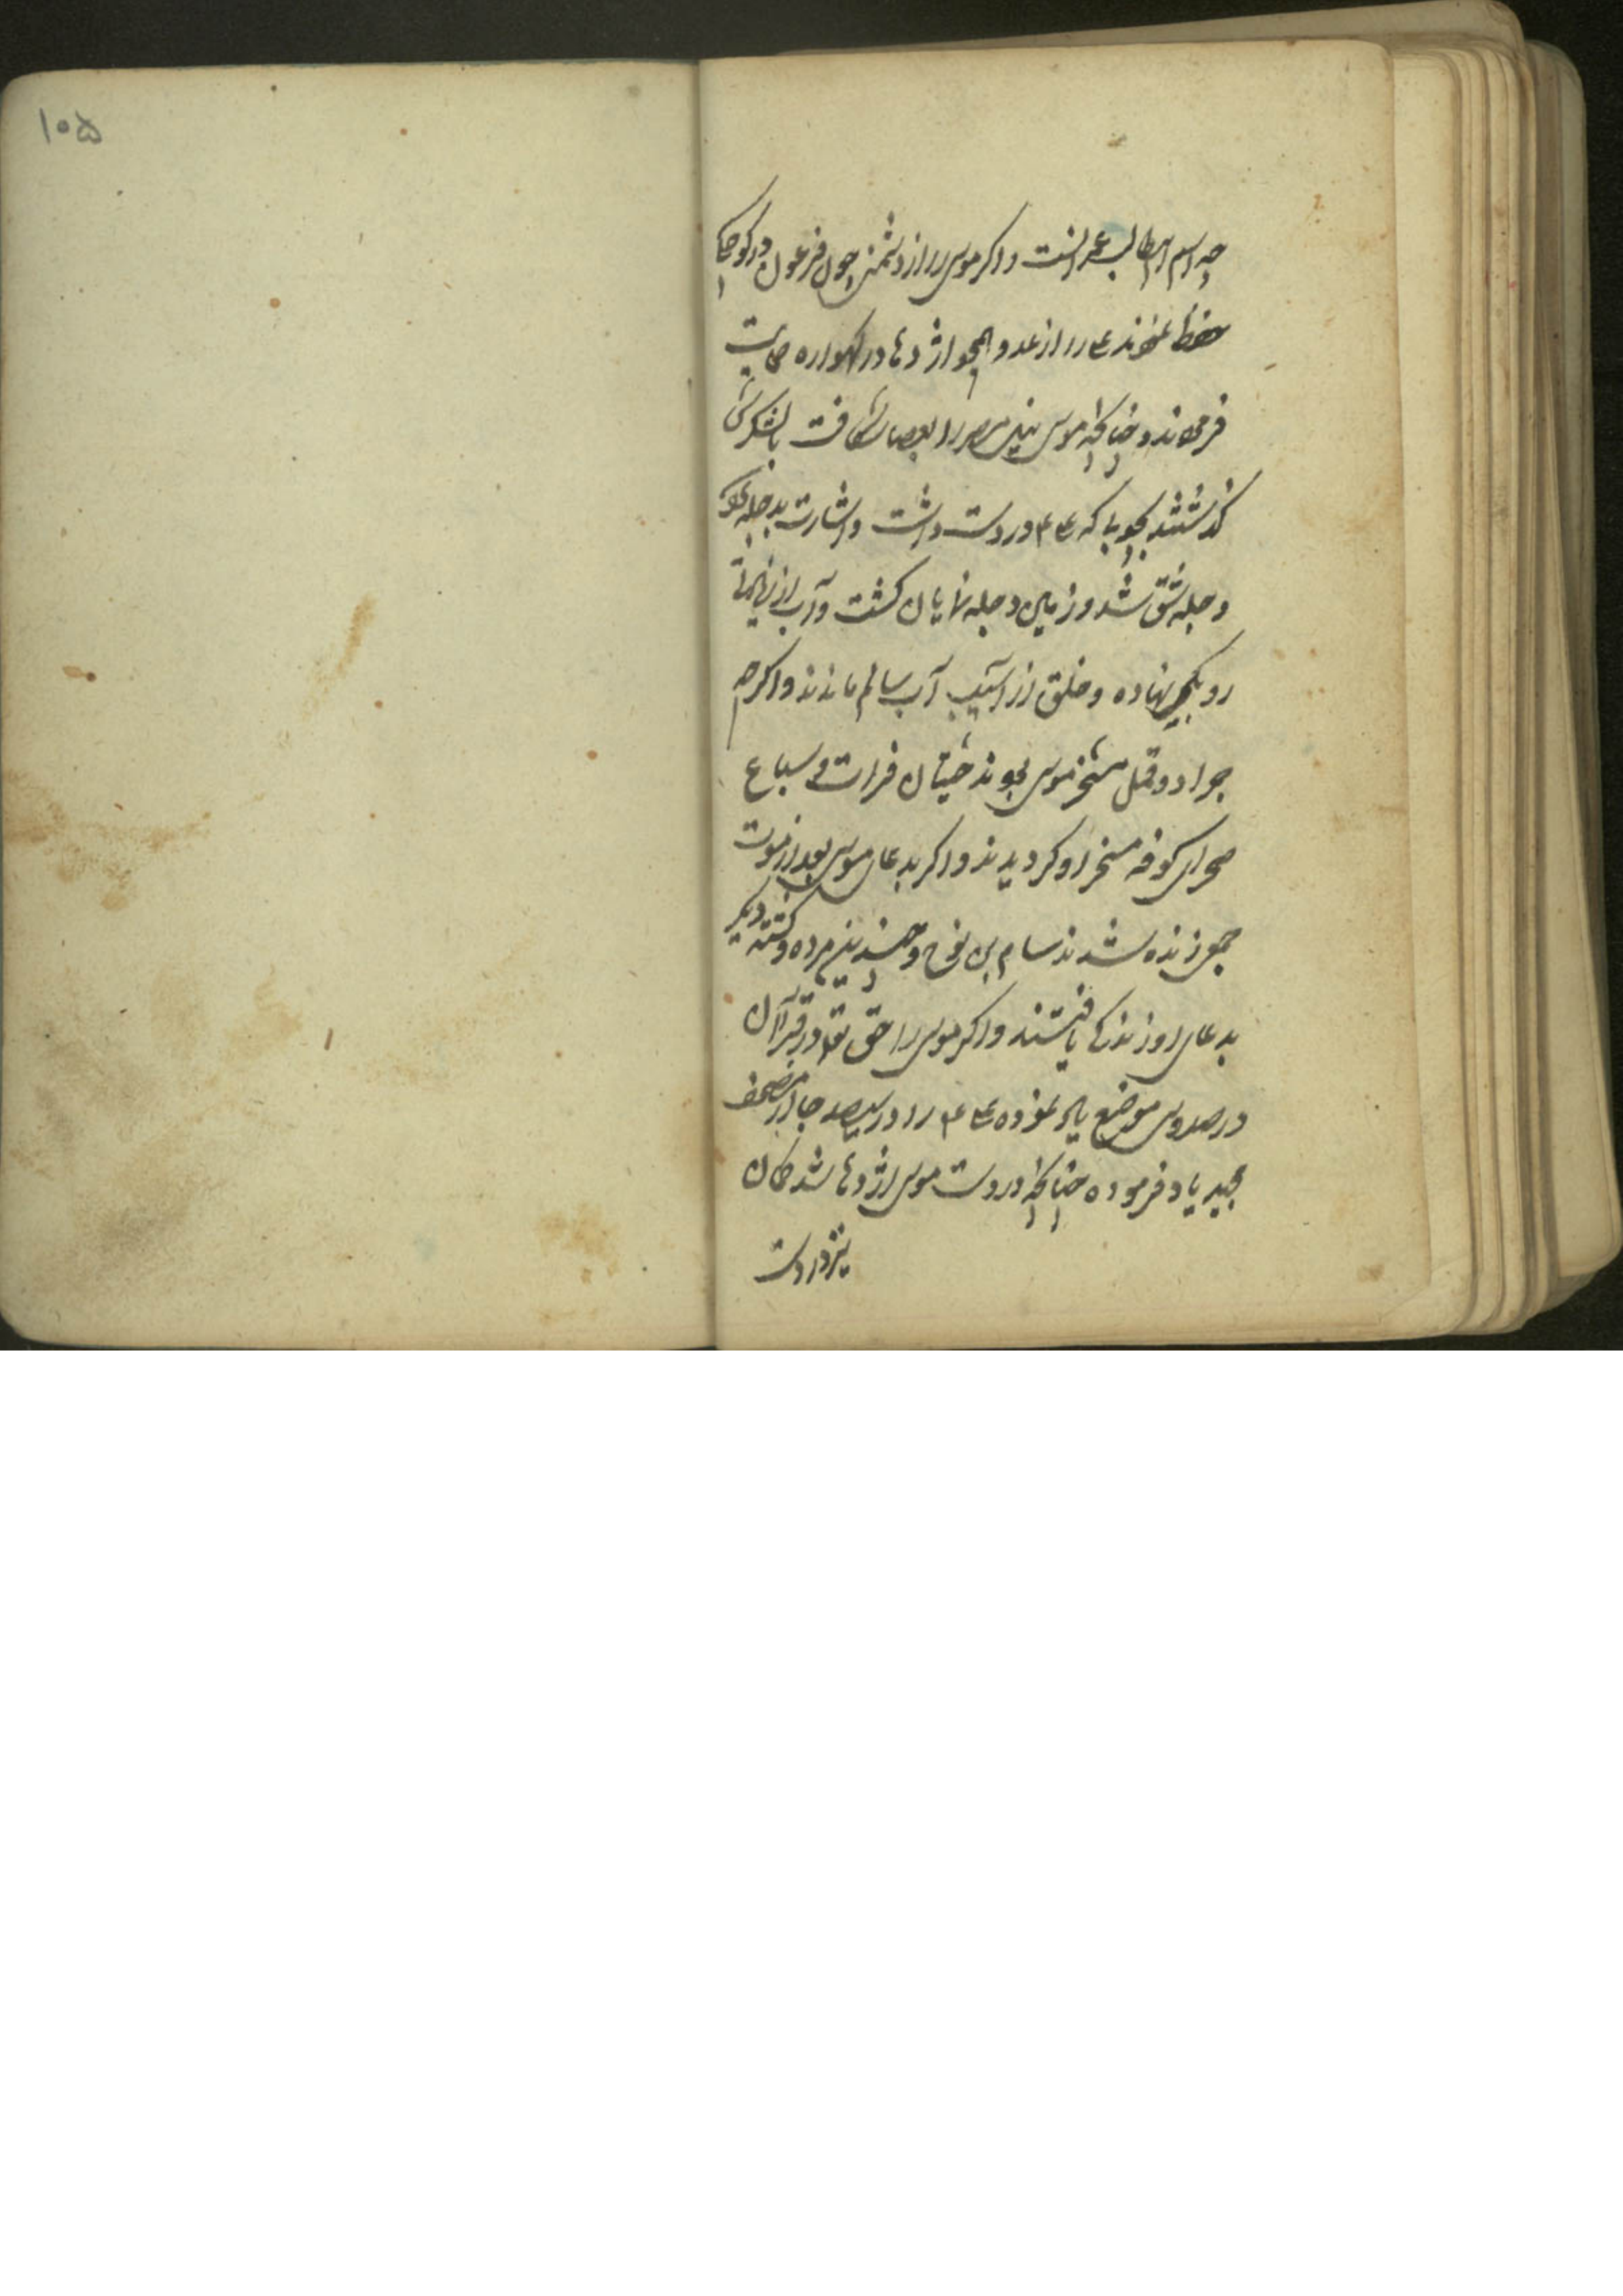 ۱۰۵
چه اسم ابوطالب عمرانست و اگر موسی را از دشمنی چون فرعون در کوچکی
حفظ نمودند علی را از عدو همچو اژدها در گهواره حمایت
فرمودند و چنانچه موسی نیل مصر را بعصا شکافت با لشکرش
گذشتند بچوبی که علی ع در دست داشت و اشارت بدجله نمود
دجله شق شد و زمین دجله نمایان گشت و آب از
رو بکمی نهاده و خلق از آسیب آب سالم ماندند و اگر چه
جراد و قمل مسخر موسی بودند حیتان فرات و سباع
صحرای کوفه مسخر او گردیدند و اگر بدعای موسی بعد از موت
جمعی زنده شدند سام بن نوح و چند نیم مرده و کشته دیگر
بدعای او زندگی یافتند و اگر موسی را حق تعالی در قرآن
در صد و سی موضع یاد نموده علی ع را در سیصد جا در مصحف
مجید یاد فرموده چنانچه در دست موسی اژدها شد کمان
نیز در دست